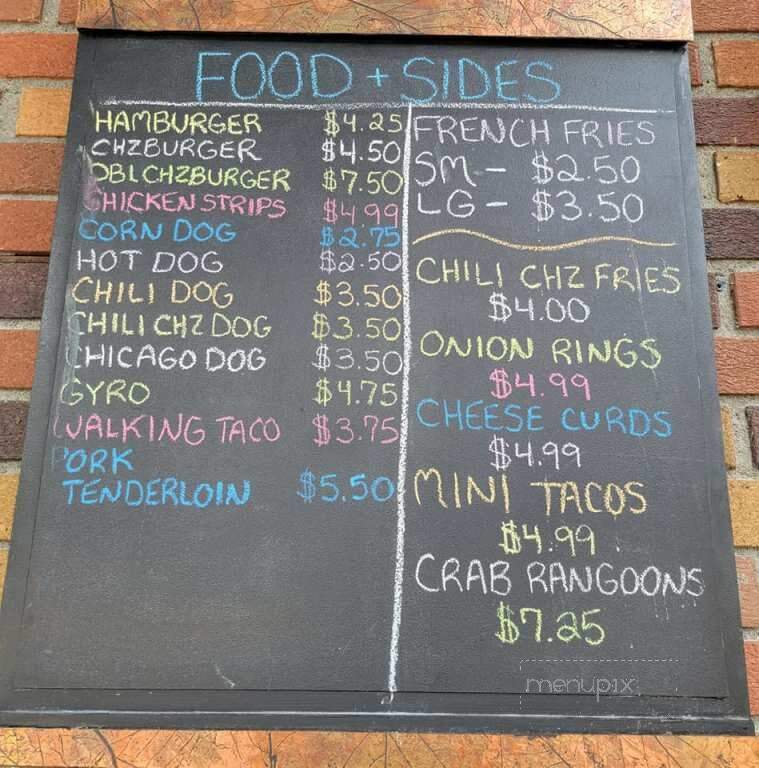 FOOD + SIDES
HAMBURGER $4.25
CHZBURGER $4.50
DBL CHZBURGER $7.50
CHICKEN STRIPS $4.99
CORN DOG $2.75
HOT DOG $2.50
CHILI DOG $3.50
CHILI CHZ DOG $3.50
CHICAGO DOG $3.50
GYRO $4.75
WALKING TACO $3.75
PORK
TENDERLOIN $5.50
FRENCH FRIES
SM - $2.50
LG - $3.50
CHILI CHZ FRIES
$4.00
ONION RINGS
$4.99
CHEESE CURDS
$4.99
MINI TACOS
$4.99
CRAB RANGOONS
$7.25
menupix